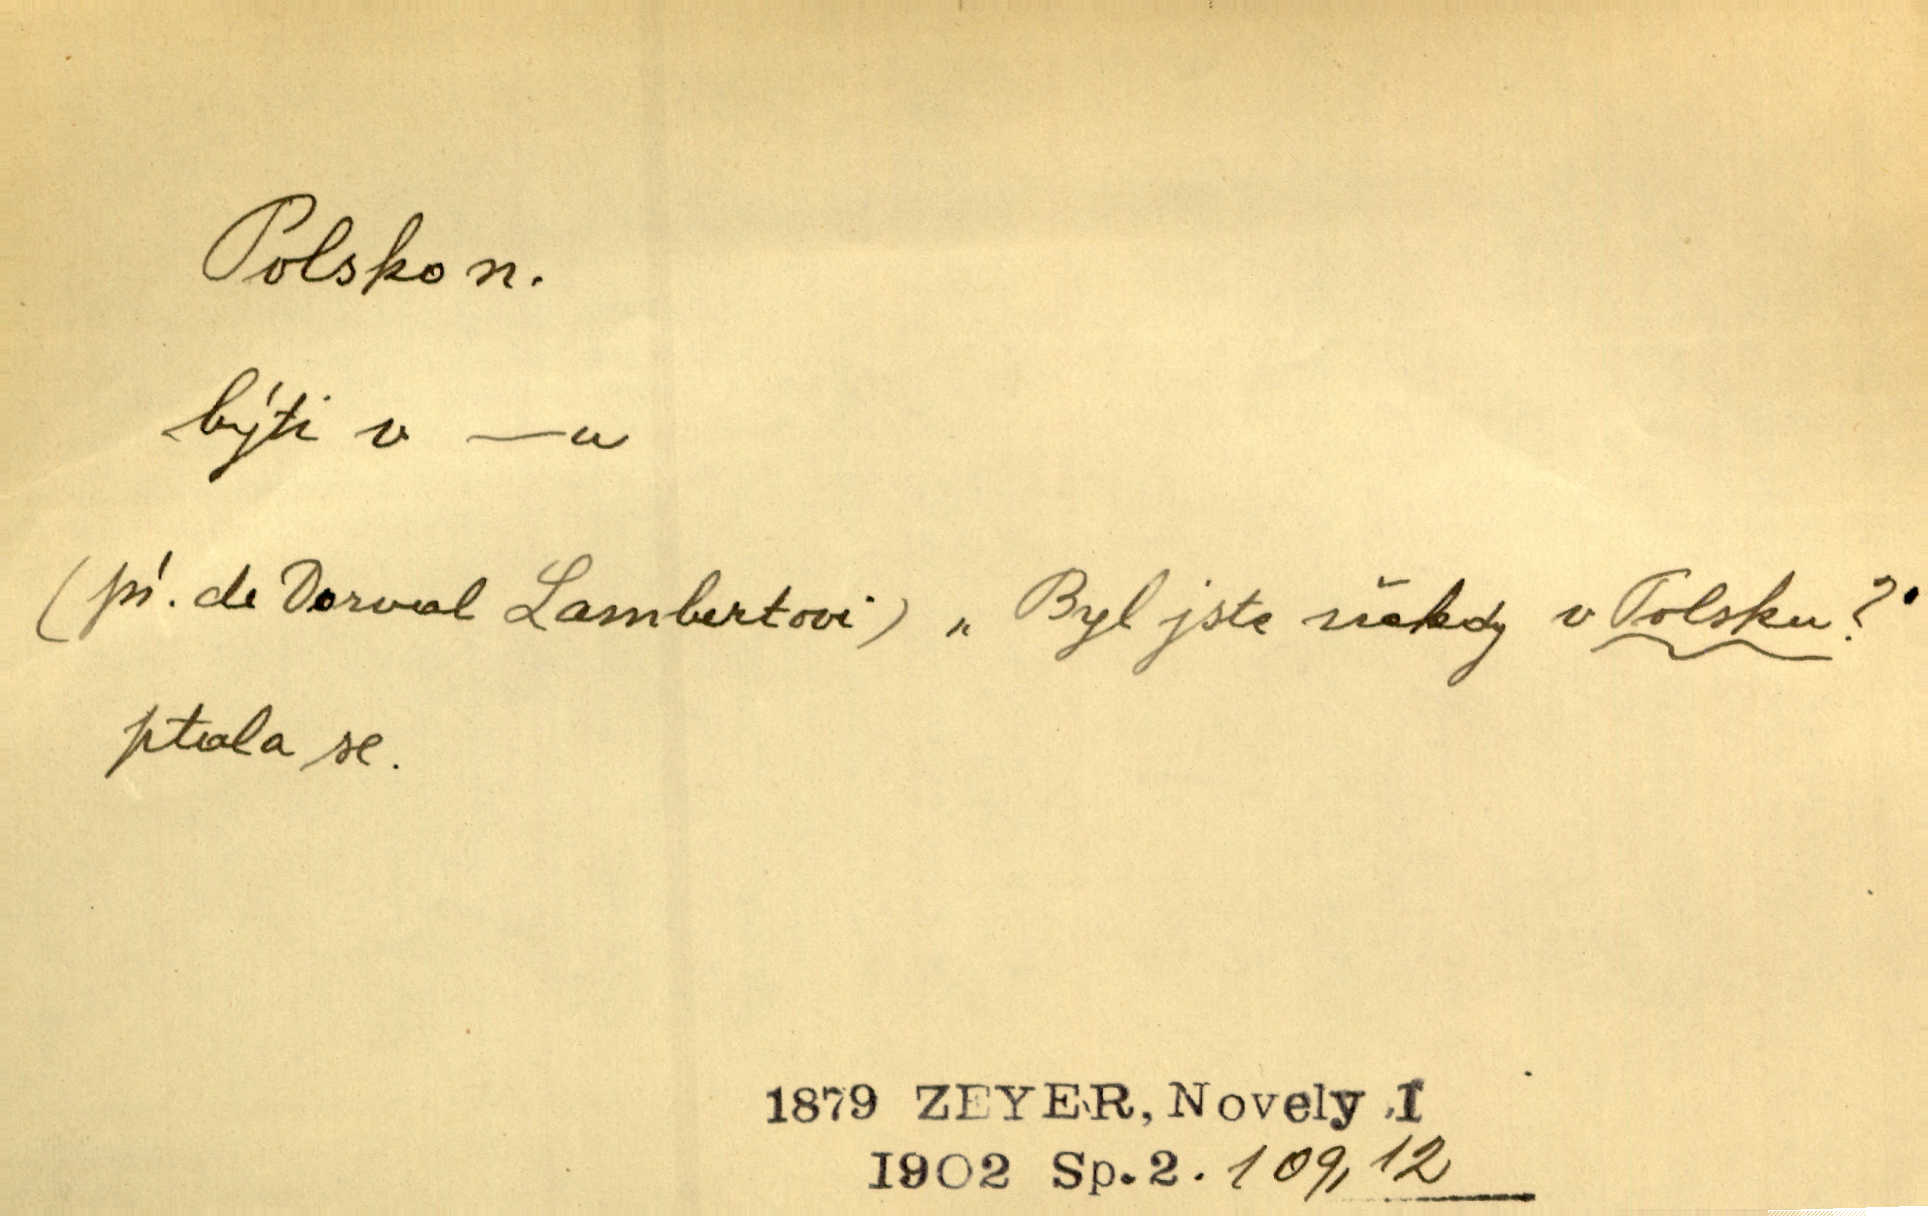 Polsko n.
býti v —u
(pí. de Dorval Lambertovi) „Byl jste někdy v Polsku?"
ptala se.
1879 ZEYER, Novely I
1902 Sp. 2. 109,12